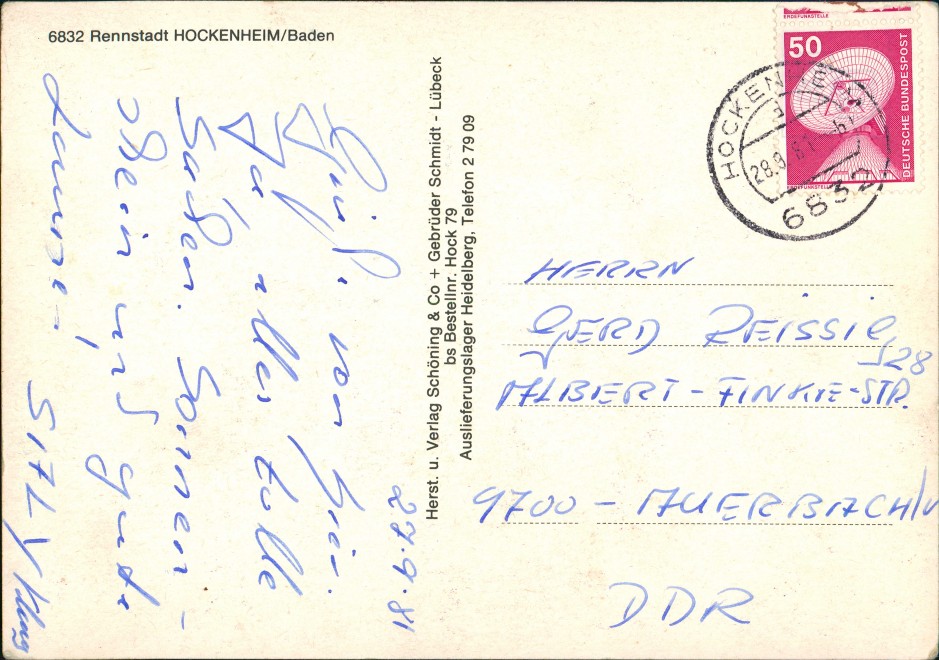 6832 Rennstadt HOCKENHEIM/Baden
27.9.81
Gruß von hier.
Ja alles tolle
Saßen. Sonnen-
Schein und gute
Laune.
SALLY
Herst. u. Verlag Schöning & Co + Gebrüder Schmidt - Lübeck
bs Bestellnr. Hock 79
Auslieferungslager Heidelberg, Telefon 2 79 09
ERDEFUNKSTELLE
50
DEUTSCHE BUNDESPOST
ERDEFUNKSTELLE
HOCKENHEIM 1
6832
HERRN
GERD REISSIG
128
ALBERT-FINKE-STR.
9700 - AUERBACH/V
DDR